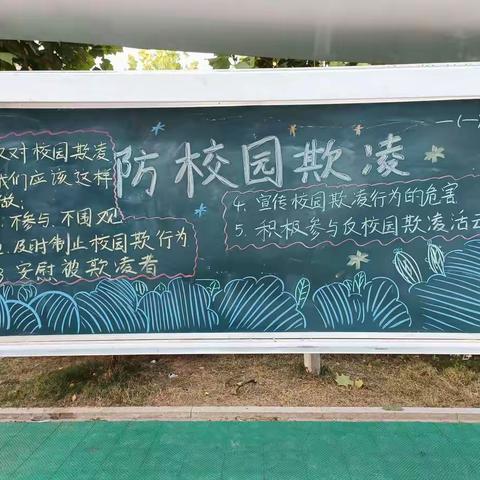 防校园欺凌
一(一
反对校园欺凌
我们应该这样
做:
1.不参与、不围观
2.及时制止校园欺行为
3.安慰被欺凌者
4.宣传校园欺凌行为的危害
5.积极参与反校园欺凌活动